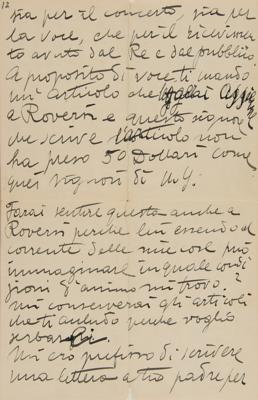 12
sia per il concerto, sia per
la voce, che per il ricevimen
to avuto dal Re e dal pubblico.
A proposito di voce ti mando
un articolo che
a Roversi e questo signore
che scrive l'articolo non
ha preso 50 Dollari come
quei signori di N.Y.
Farai sentire questo anche a
Roversi perche lui essendo al
corrente delle mie cose può
immaginare in quale condi
zioni d'animo mi trovo.
Mi conserverai gli articoli
che ti accludo perche voglio
serbarli.
Mi ero prefisso di scrivere
una lettera a tuo padre per